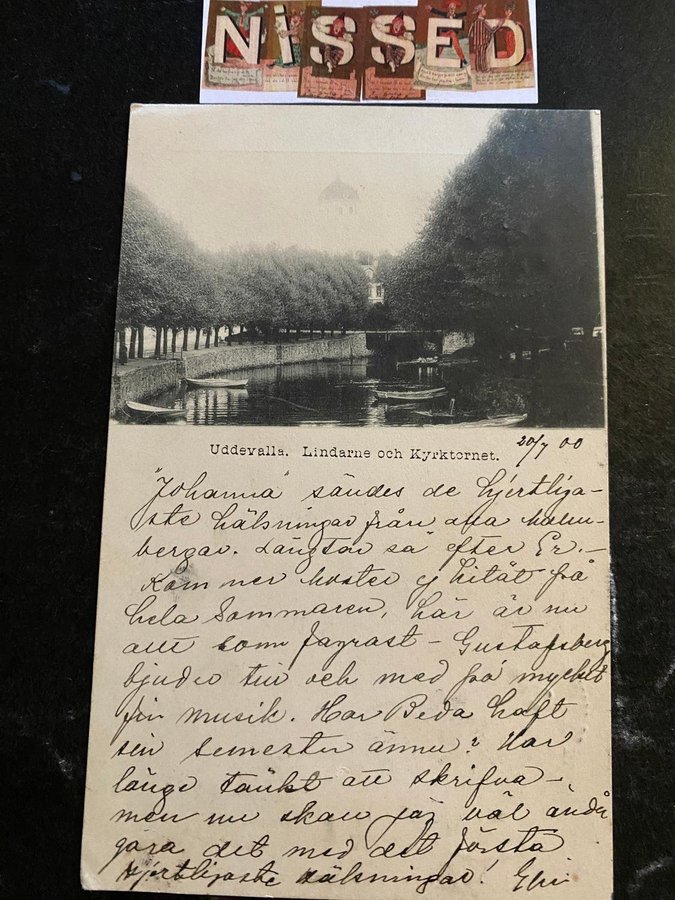 NISSED
Uddevalla. Lindarne och Kyrktornet.
20/7 00
"Johanna" sändes de hjertliga-
ste hälsningar från alla
bergar. Längtar så efter Er. –
Kommer moster ej hitåt på
hela Sommaren, här är nu
allt som fagrast – Gustafsberg
bjuder till och med på mycket
fin musik. Har Beda haft
sin semester ännu? Har
länge tänkt att skrifva –
men nu skall jag väl ändå
göra det med det första
Hjertligaste hälsningar!